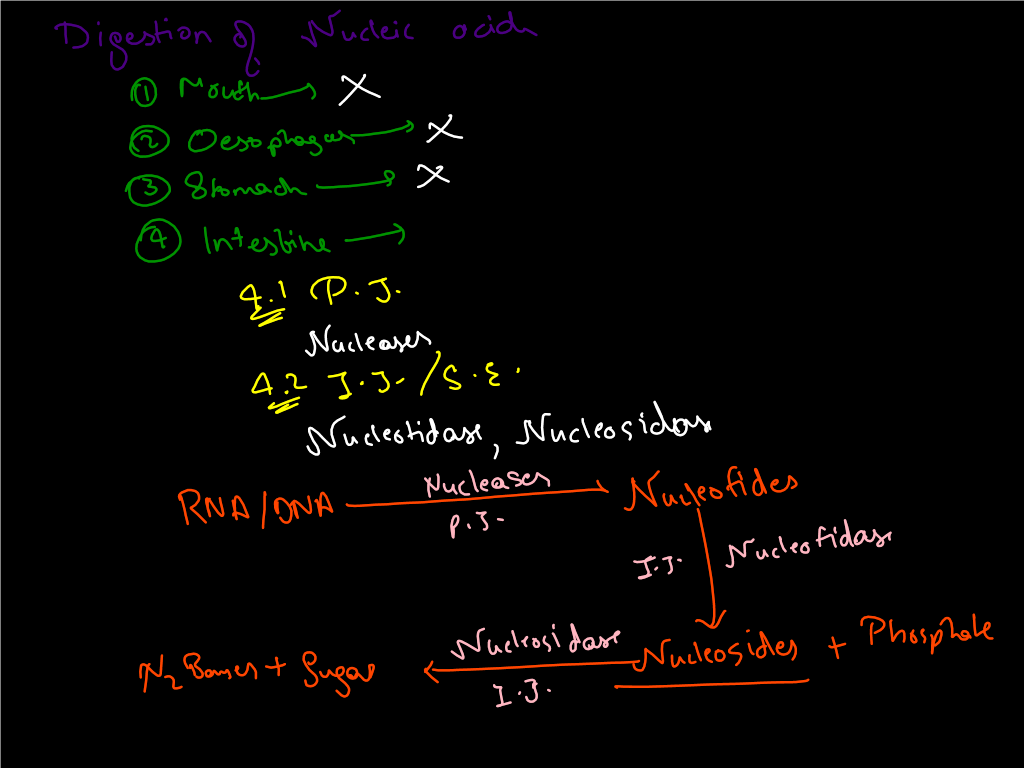 Digestion of Nucleic acids
① Mouth → X
② Oesophagus → X
③ Stomach → X
④ Intestine →
4.1 P.J.
Nucleases
4.2 I.J. / S.E.
Nucleotidase, Nucleosidase
RNA/DNA Nucleases P.J. → Nucleotides
I.J. Nucleotidase
N2 Bases + Sugar ← Nucleosidase I.J. Nucleosides + Phosphate